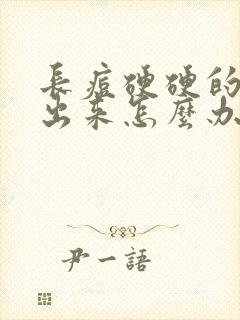 長痘硬硬的
出來怎麼办
尹一語